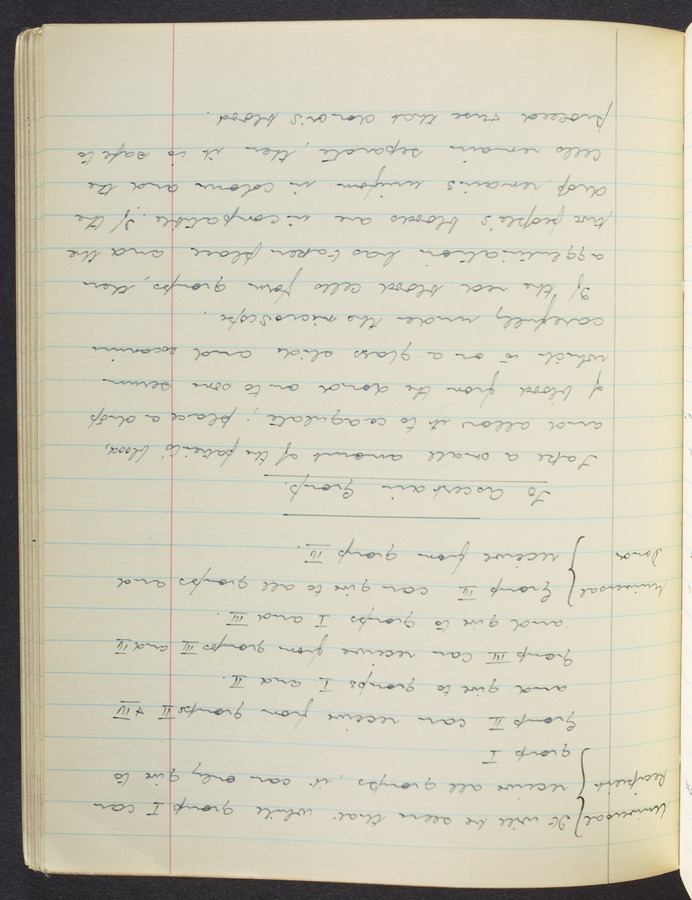 Universal } It will be seen that while group I can
Recipient } receive all groups, it can only give to
group I
Group II can receive from groups II & IV
and give to groups I and II.
Group III can receive from groups III and IV
and give to groups I and III.
Universal } Group IV can give to all groups and
Donor } receive from group IV.
To Ascertain Group.
Take a small amount of the patient's blood,
and allow it to coagulate; place a drop
of blood from the donor on to some serum
which is on a glass slide and examine
carefully under the microscope.
If the red blood cells form groups, then
agglutination has taken place and the
two people's bloods are incompatible. If the
drop remains uniform in colour and the
cells remain separate, then it is safe to
proceed & use that donor's blood.